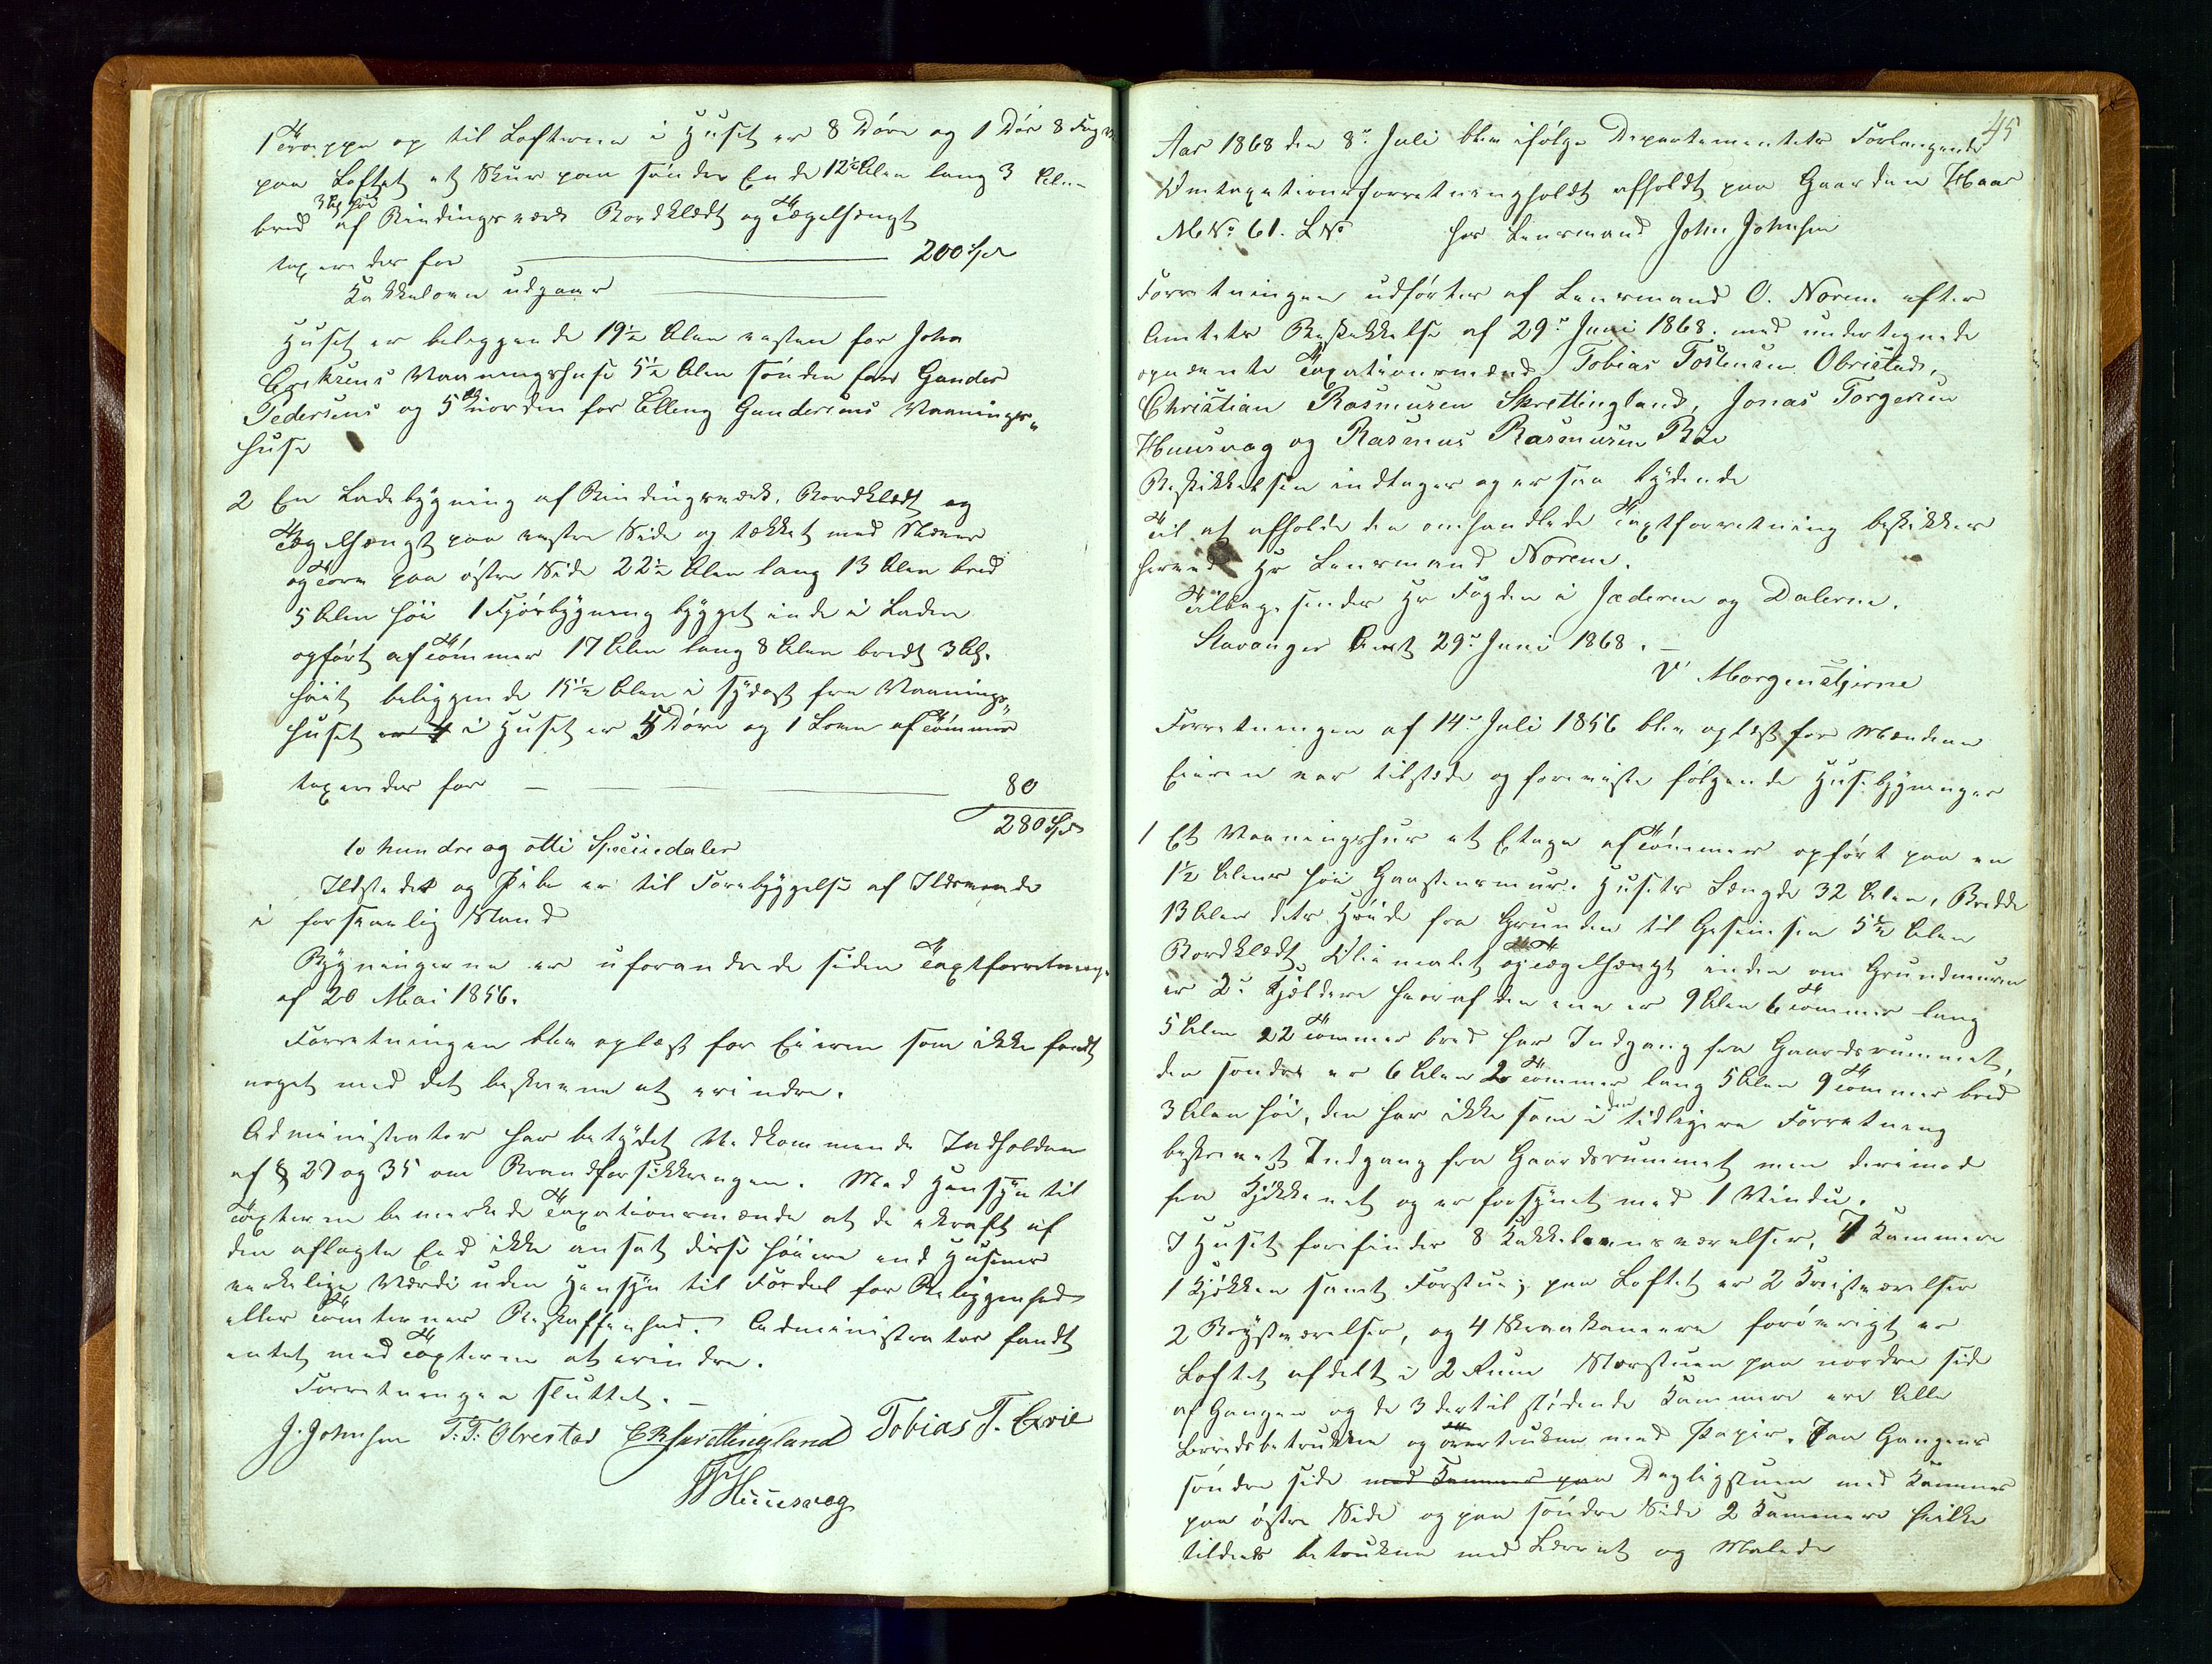 1 Trappe op til Lofterne i Huset er 8 Döre og 1 Dör 8 Fag
paa Loftet et Skur paa söndre Ende 12½ Alen lang 3 Alen
bred 3 Al höi af Bindingsværk Bordklædt og Tægelhængt
taxeredes for 200 Spd
Kakkeloven udgaar
Huset er beliggende 19½ Alen vesten for John
Eriksens Vaaningshuse 5½ Alen sönden for Gunder
Pedersens og 5 Al norden for Elleng Gundersens Vaanings„
huse
2 En Ladebygning af Bindingsværk. Bordklædt og
Tægelhængt paa vestre Side og tækket med Næver
og Torv paa östre Side 22½ Alen lang 13 Alen bred
5 Alen höi 1 Fjösbygning bygget inde i Laden
opfört af Tömmer 17 Alen lang 8 Alen bredt 3 Al.
höit beliggende 15½ Alen i sydost fra Vaanings„
huset er 4 i Huset er 5 Döre og 1 Loem af Tömmer
taxeredes for 80
280 Spd
to hundre og otti Speciedaler
Ildstedet og Pibe er til Forebyggelse af Ildsvaade
i forsvarlig Stand
Bygningerne er uforandrede siden Taxtforretning
af 20 Mai 1856.
Forretningen blev oplæst for Eieren som ikke fandt
noget med det beskrevne at erindre.
Administrator har betydet Vedkommende Indholden
af § 27 og 35 om Brandforsikkringen. Med Hensyn til
Taxterne bemærkede Taxationsmændene at de i kraft af
den aflagte Eed ikke ansat disse höiere end Husenes
verkelige Værdi uden Hensyn til Fordeel for Beliggenhed
eller Tomternes Beskaffenhed. Administrator fandt
intet med Taxterne at erindre.
Forretningen sluttet.
J. Johnsen T. T. Obrestad C R Skrettingland Tobias T. Evie
Huusvæg
45
Aar 1868 den 8de Juli blev ifölge Departementets Forlangende
Omtaxationsforretning holdt afholdt paa Gaarden Haar
M No 61. L No hos Lensmand John Johnsen
Forretningen udförtes af Lensmand O. Norem efter
Amtets Beskikkelse af 29de Juni 1868. med undertegnede
opnævnte Taxationsmænd Tobias Tostensen Obrestad,
Christian Rasmusen Skrettingland, Jonas Torgersen
Huusvæg og Rasmus Rasmusen Böe
Beskikkelsen indtages og er saa lydende
Til at afholde den omhandlede Taxtforretning beskikkes
herved Hr Lensmand Norem.
Tilbagesendes Hr Fogden i Jæderen og Dalerne.
Stavanger Amt 29de Juni 1868.
V Morgenstjerne
Forretningen af 14de Juli 1856 blev oplæst for Mændene
Eieren var tilstede og foreviste fölgende Husebygninger
1 Et Vaaningshus et Etage af Tömmer opfört paa en
1½ Alens höi Graastensmur. Husets Længde 32 Alen, Bredde
13 Alen dets Höide fra Grunden til Gesimsen 5½ Alen
Bordklædt Oliemalet og Tægelhængt inden om Grundmuren
er 2de Kjeldere hvoraf den ene er 9 Alen 6 Tommer lang
5 Alen 22 Tommer bred har Indgang fra Gaardsrummet,
den söndre er 6 Alen 20 Tommer lang 5 Alen 9 Tommer bred
3 Alen höi, den har ikke som i den tidligere Forretning
beskrevet Indgang fra Gaardsrummet men derimod
fra Kjökkenet og er forsynet med 1 Vindu.
I Huset forefindes 8 Kakkelovnsværelser, 7 Kammere
1 Kjökken samt Forstue; paa Loftet er 2 Kvistværelser
2 Röystværelser, og 4 Skraakamere foröverigt er
Loftet afdelt i 2 Rum Storstuen paa nordre side
af Gangen og de 3 dertil stödende Kammere ere Alle
Lerredsbetrukkne og overtrukne med Papir. Paa Gangens
söndre side med Kammer paa Dagligstuen med Kammer
paa östre Side og paa söndre Side 2 Kammere hvilke
tildeels betrukne med Lærret og Malede